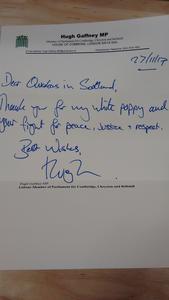 Hugh Gaffney MP
Member of Parliament for Coatbridge, Chryston and Bellshill
HOUSE OF COMMONS, LONDON SW1A 0AA
27/11/17
Dear Quakers in Scotland,
Thank you for my white poppy and
your fight for peace, justice + respect.
Best Wishes,
Hugh
Hugh Gaffney MP
Labour Member of Parliament for Coatbridge, Chryston and Bellshill